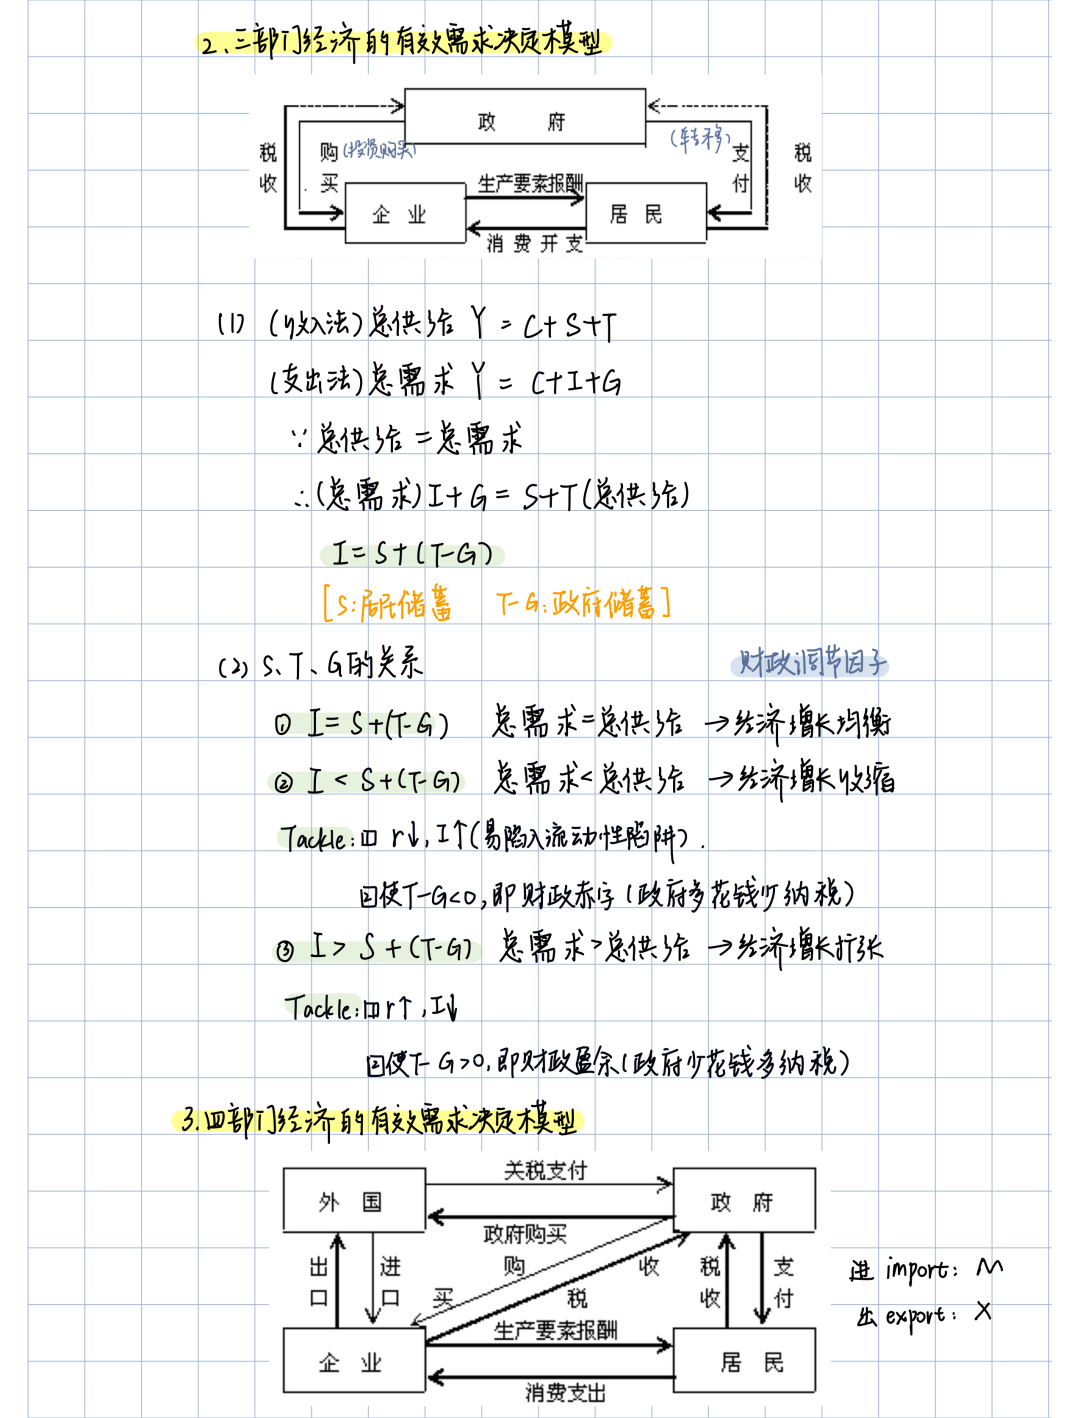 2、三部门经济的有效需求决定模型
政 府
税收
购买
(投资购买)
(转移)
支付
税收
企 业
生产要素报酬
居 民
消费开支
(1) (收入法)总供给 Y = C+S+T
(支出法)总需求 Y = C+I+G
∵总供给=总需求
∴(总需求)I+G = S+T(总供给)
I=S+(T-G)
[S:居民储蓄 T-G:政府储蓄]
(2) S、T、G的关系 财政调节因子
① I=S+(T-G) 总需求=总供给 →经济增长均衡
② I<S+(T-G) 总需求<总供给 →经济增长收缩
Tackle: 1 r↓, I↑(易陷入流动性陷阱).
2使T-G<0,即财政赤字(政府多花钱少纳税)
③ I>S+(T-G) 总需求>总供给 →经济增长扩张
Tackle: 1 r↑, I↓
2使T-G>0,即财政盈余(政府少花钱多纳税)
3.四部门经济的有效需求决定模型
外 国
关税支付
政 府
政府购买
出口
进口
购买
税收
税收
支付
企 业
生产要素报酬
居 民
消费支出
进 import: M
出 export: X